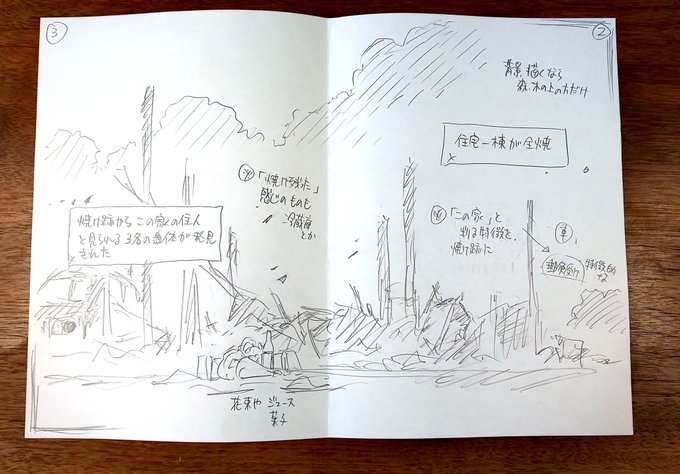 ②
背景、描くなら
森、木の上の方だけ
住宅一棟が全焼
「この家」と
判る特徴を
焼け跡に
郵便受け
特徴的
な
③
「焼け残った」
感じのものも
冷蔵庫
とか
焼け跡からこの家の住人
と見られる3名の遺体が発見
された
花束や ジュース
菓子